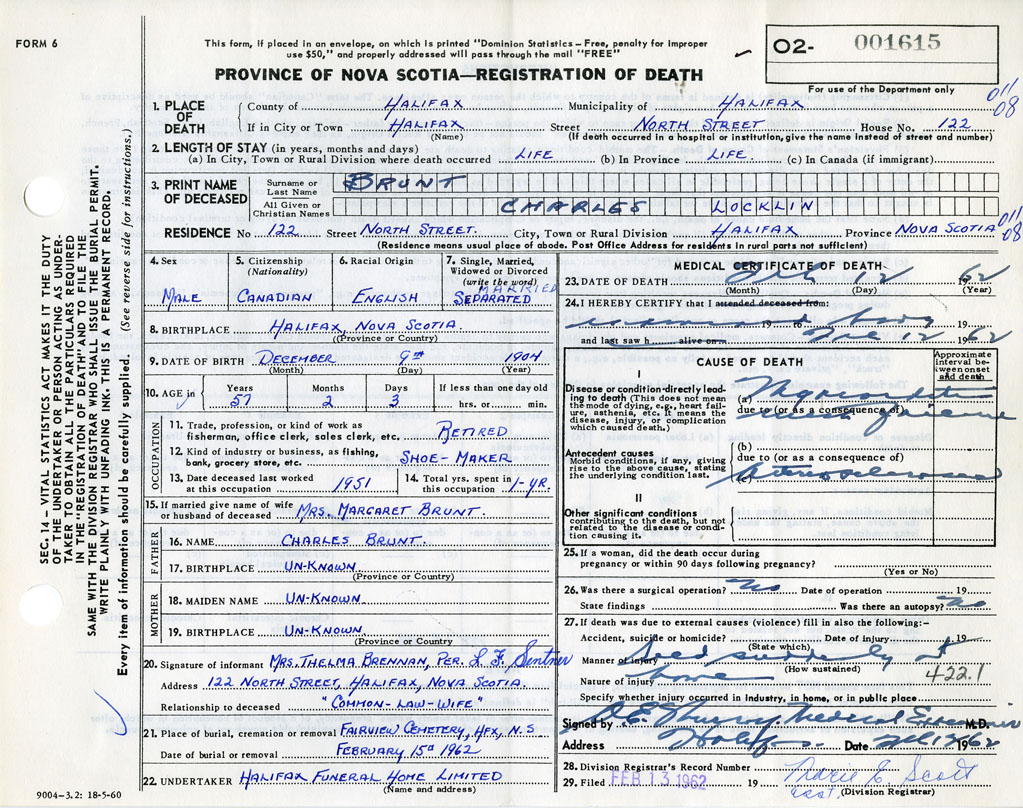 FORM 6
This form, if placed in an envelope, on which is printed "Dominion Statistics – Free, penalty for improper
use $50," and properly addressed will pass through the mail "FREE"
O2- 001615
For use of the Department only
PROVINCE OF NOVA SCOTIA—REGISTRATION OF DEATH
011
08
1. PLACE OF DEATH
County of HALIFAX Municipality of HALIFAX
If in City or Town HALIFAX Street NORTH STREET House No. 122
(Name) (If death occurred in a hospital or institution, give the name instead of street and number)
2. LENGTH OF STAY (in years, months and days)
(a) In City, Town or Rural Division where death occurred LIFE (b) In Province LIFE. (c) In Canada (if immigrant)
3. PRINT NAME OF DECEASED
Surname or Last Name BRUNT
All Given or Christian Names CHARLES LOCKLIN
011
08
RESIDENCE No 122 Street NORTH STREET. City, Town or Rural Division HALIFAX Province NOVA SCOTIA
(Residence means usual place of abode. Post Office Address for residents in rural parts not sufficient)
4. Sex
MALE
5. Citizenship
(Nationality)
CANADIAN
6. Racial Origin
ENGLISH
7. Single, Married,
Widowed or Divorced
(write the word)
MARRIED
SEPARATED
8. BIRTHPLACE HALIFAX, NOVA SCOTIA.
(Province or Country)
9. DATE OF BIRTH DECEMBER 9th 1904
(Month) (Day) (Year)
10. AGE in
Years Months Days If less than one day old
57 2 3 hrs. or min.
OCCUPATION
11. Trade, profession, or kind of work as
fisherman, office clerk, sales clerk, etc. RETIRED
12. Kind of industry or business, as fishing,
bank, grocery store, etc. SHOE-MAKER
13. Date deceased last worked
at this occupation 1951
14. Total yrs. spent in
this occupation 1-YR.
15. If married give name of wife
or husband of deceased MRS. MARGARET BRUNT.
FATHER
16. NAME CHARLES BRUNT.
17. BIRTHPLACE UN-KNOWN
(Province or Country)
MOTHER
18. MAIDEN NAME UN-KNOWN
19. BIRTHPLACE UN-KNOWN
(Province or Country
20. Signature of informant MRS. THELMA BRENNAN, PER.
Address 122 NORTH STREET, HALIFAX, NOVA SCOTIA.
Relationship to deceased "COMMON-LAW-WIFE"
21. Place of burial, cremation or removal FAIRVIEW CEMETERY, HFX, N.S
Date of burial or removal FEBRUARY 15th 1962
22. UNDERTAKER HALIFAX FUNERAL HOME LIMITED
(Name and address)
9004–3.2: 18-5-60
MEDICAL CERTIFICATE OF DEATH
23. DATE OF DEATH Feb 12 1962
(Month) (Day) (Year)
24. I HEREBY CERTIFY that I attended deceased from:
19 to 19
and last saw h alive on Feb 12 1962
CAUSE OF DEATH
Approximate
interval between onset
and death
I
Disease or condition directly lead-
ing to death (This does not mean
the mode of dying, e.g., heart fail-
ure, asthenia, etc. It means the
disease, injury, or complication
which caused death.)
(a)
due to (or as a consequence of)
Antecedent causes
Morbid conditions, if any, giving
rise to the above cause, stating
the underlying condition last.
(b)
due to (or as a consequence of)
(c)
II
Other significant conditions
contributing to the death, but not
related to the disease or condi-
tion causing it.
25. If a woman, did the death occur during
pregnancy or within 90 days following pregnancy?
(Yes or No)
26. Was there a surgical operation? No Date of operation 19
State findings Was there an autopsy? No
27. If death was due to external causes (violence) fill in also the following:-
Accident, suicide or homicide? Date of injury 19
(State which)
Manner of injury Died suddenly at
(How sustained)
Nature of injury home 422.1
Specify whether injury occurred in industry, in home, or in public place
Signed by Medical Examiner M.D.
Address Halifax Date Feb 13 1962
28. Division Registrar's Record Number
29. Filed FEB 13 1962 19 Marie E. Scott
asst. (Division Registrar)
SEC. 14 – VITAL STATISTICS ACT MAKES IT THE DUTY
OF THE UNDERTAKER OR PERSON ACTING AS UNDER-
TAKER TO OBTAIN ALL THE PARTICULARS REQUIRED
IN THE "REGISTRATION OF DEATH" AND TO FILE THE
SAME WITH THE DIVISION REGISTRAR WHO SHALL ISSUE THE BURIAL PERMIT.
WRITE PLAINLY WITH UNFADING INK. THIS IS A PERMANENT RECORD.
Every item of information should be carefully supplied. (See reverse side for instructions.)